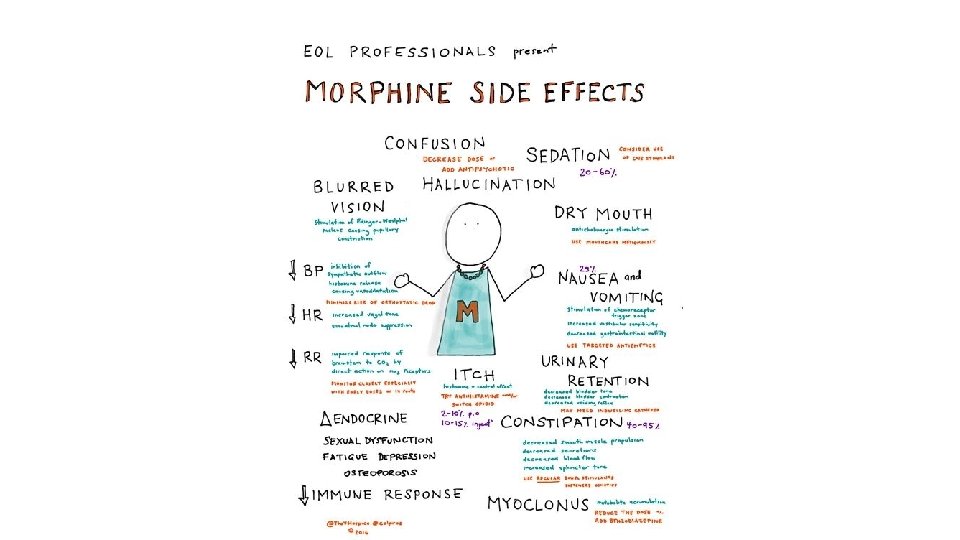 EOL PROFESSIONALS present
MORPHINE SIDE EFFECTS
CONFUSION
DECREASE DOSE or
ADD ANTIPSYCHOTIC
HALLUCINATION
SEDATION
CONSIDER USE
20-60%
BLURRED
VISION
Stimulation of
causing pupillary
constriction
DRY MOUTH
anticholinergic stimulation
↓ BP
inhibition of
sympathetic outflow
histamine release
causing vasodilatation
MINIMISE RISK OF ORTHOSTATIC
↓ HR
increased vagal tone
sinoatrial node suppression
↓ RR
impaired response of
brainstem to CO2 by
direct action on receptors
MONITOR CLOSELY ESPECIALLY
WITH EARLY DOSES
M
25%
NAUSEA and
VOMITING
Stimulation of chemoreceptor
trigger zone
increased vestibular sensitivity
decreased gastrointestinal motility
USE TARGETED ANTIEMETICS
URINARY
RETENTION
decreased bladder tone
decreased bladder contraction
decreased voiding reflex
MAY NEED INDWELLING CATHETER
ITCH
histamine + central effect
TRY ANTIHISTAMINE
SWITCH OPIOID
2-10% p.o
10-15%
CONSTIPATION 40-95%
decreased smooth muscle propulsion
decreased secretions
decreased blood flow
increased sphincter tone
USE REGULAR BOWEL STIMULANTS
ΔENDOCRINE
SEXUAL DYSFUNCTION
FATIGUE DEPRESSION
OSTEOPOROSIS
↓IMMUNE RESPONSE
MYOCLONUS
metabolite accumulation
REDUCE THE DOSE or
ADD BENZODIAZEPINE
© 2016